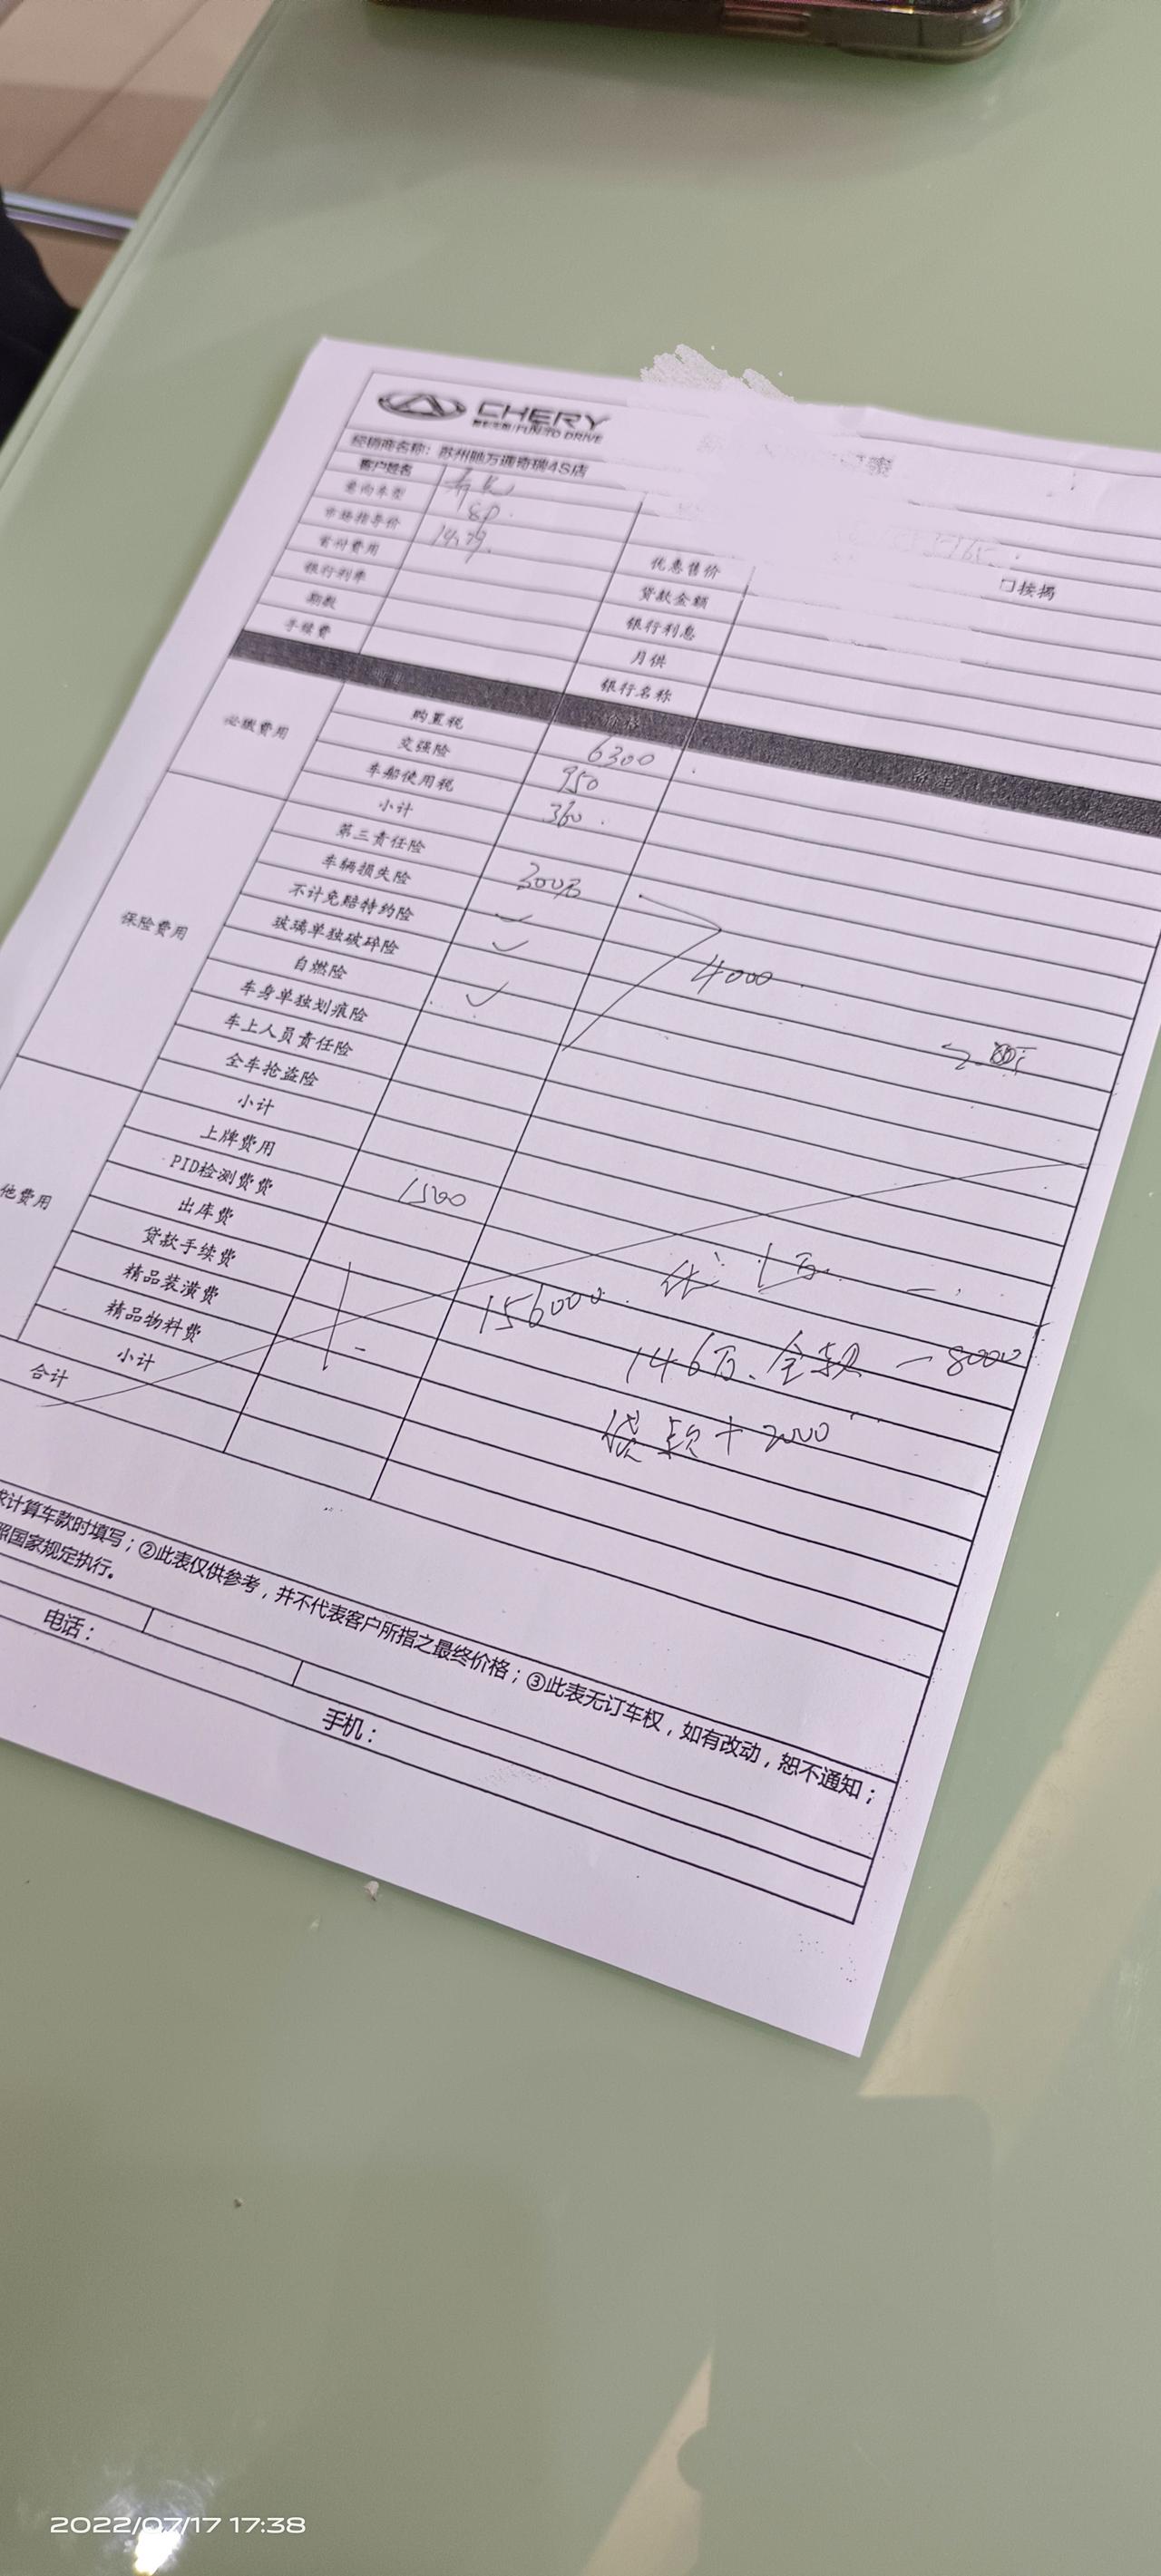 CHERY
FUN TO DRIVE
经销商名称：苏州驰万通奇瑞4S店
客户姓名
意向车型 8P
市场指导价 14.79
首付费用 优惠售价 □按揭
银行利率 贷款金额
期数 银行利息
手续费 月供
银行名称
价格
必缴费用
购置税 6300
交强险 950
车船使用税 360
小计
保险费用
第三责任险 300万
车辆损失险 ✓
不计免赔特约险 ✓
玻璃单独破碎险
自燃险 ✓
4000
车身单独划痕险
车上人员责任险
全车抢盗险
小计
他费用
上牌费用 1500
PID检测费费
出库费
贷款手续费
156000 优 1万
精品装潢费
14.6万、全款 -8000
精品物料费
贷款+2000
小计
合计
求计算车款时填写；②此表仅供参考，并不代表客户所指之最终价格；③此表无订车权，如有改动，恕不通知；
照国家规定执行。
电话：
手机：
2022/07/17 17:38